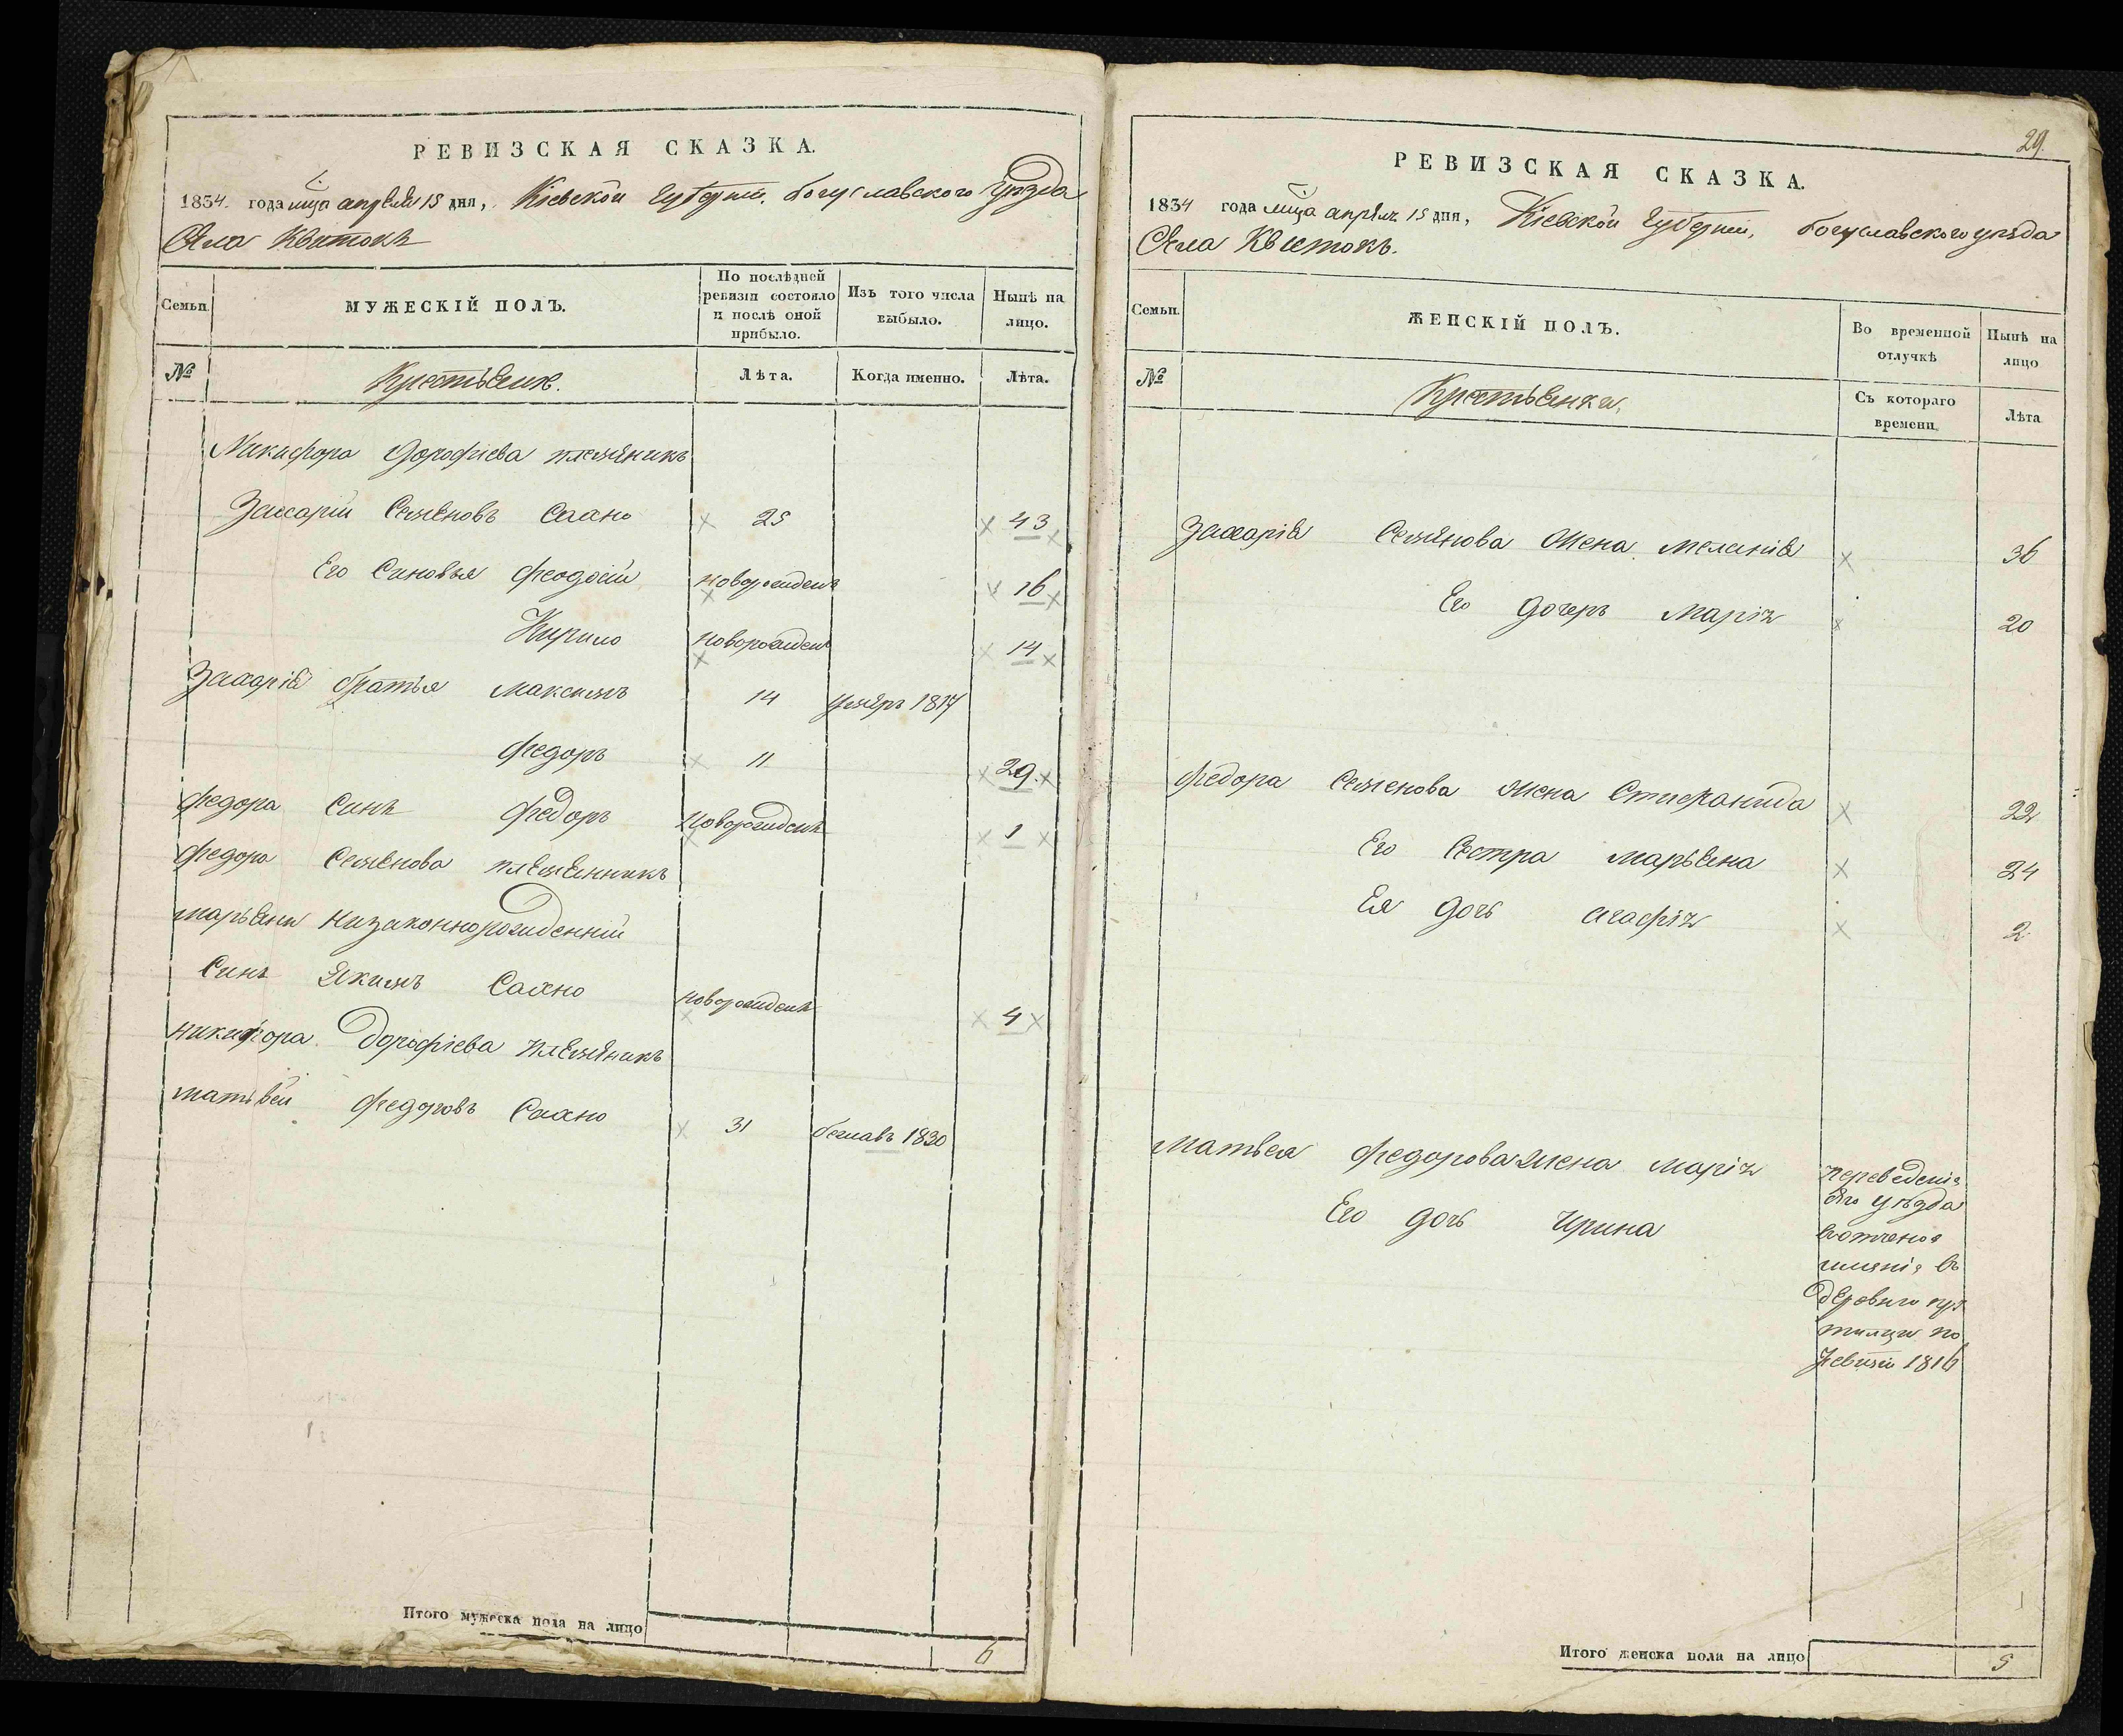 РЕВИЗСКАЯ СКАЗКА.
1834. года мца апреля 15 дня, Кіевской Губерніи, богуславского уѣзда
Села Квитокъ
Семьи.
МУЖЕСКІЙ ПОЛЪ.
По послѣдней ревизіи состояло и послѣ оной прибыло.
Изъ того числа выбыло.
Нынѣ на лицо.
№
Крестьяне.
Лѣта.
Когда именно.
Лѣта.
Никифора Дорофіева племяникъ
Захарій Семяновъ Сахно 25 43
Его Синовья Феодосій новорожденъ 16
Кирило новорожденъ 14
Захарія братья Максимъ 14 умеръ 1817
Федоръ 11 29.
Федора Синъ Федоръ Новорожденъ 1
Федора Семенова племенникъ
марьяни низаконнорожденній
Синъ Якимъ Сахно новорожденъ 4
никифора Дорофіева племяникъ
матвѣй Федоровъ Сахно 31 бежавъ 1830
Итого мужеска пола на лицо 6
29.
РЕВИЗСКАЯ СКАЗКА.
1834 года мца апрѣля 15 дня, Кіевской Губерніи, богуславского уѣзда
Села Квитокъ.
Семьи.
ЖЕНСКІЙ ПОЛЪ.
Во временной отлучкѣ
Нынѣ на лицо
№
Крестьянки,
Съ котораго времени.
Лѣта
Захарія Семянова Жена Меланія 36
Его дочерь Марія 20
Федора Семенова Жена Стиеханида 22
Его Сестра Марьяна 24
Ея дочь агафія 2
Матвея Федорова Жена Марія
Его дочь Ирина
переведенія
уѣзда
имянія въ
деревню
по
ревизіи 1816
Итого женска пола на лицо 5